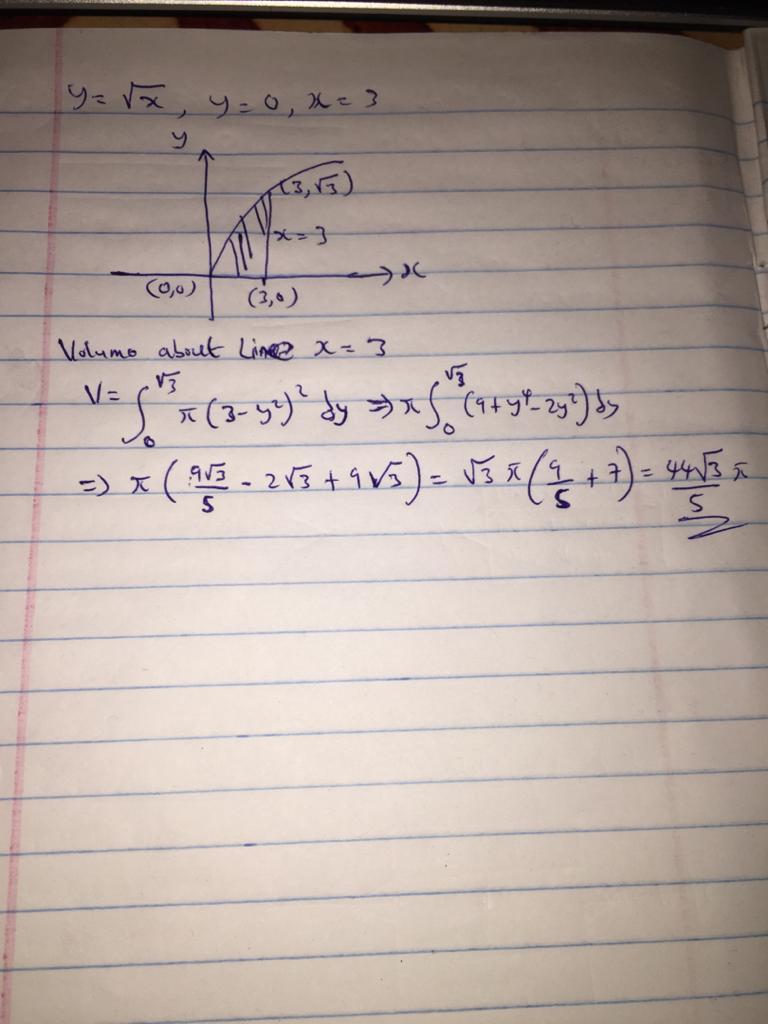 y = √x , y = 0, x = 3
y
(3,√3)
x = 3
x
(0,0)
(3,0)
Volume about Line x = 3
V = ∫₀^√3 π (3 - y²)² dy ⇒ π ∫₀^√3 (9 + y⁴ - 2y²) dy
⇒ π ( 9√3/5 - 2√3 + 9√3 ) = √3 π ( 9/5 + 7 ) = 44√3/5 π